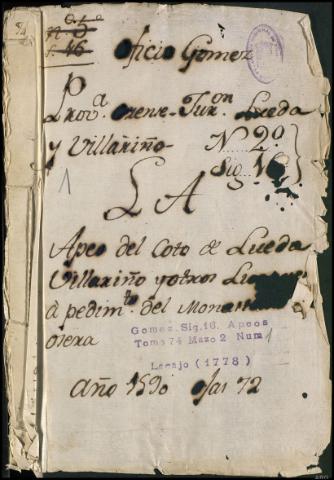 Oficio Gomez
Prov.ª Orense Jur.on Lueda
y Villariño Nº 2º
Sig. 16
L A
Apeo del Coto de Lueda
Villariño y otros
a pedim.to del
osera
Gomez. Sig. 16. Apeos
Tomo 74 Mazo 2 Num 1
Legajo (1778)
Año 1590 ojas 72
1